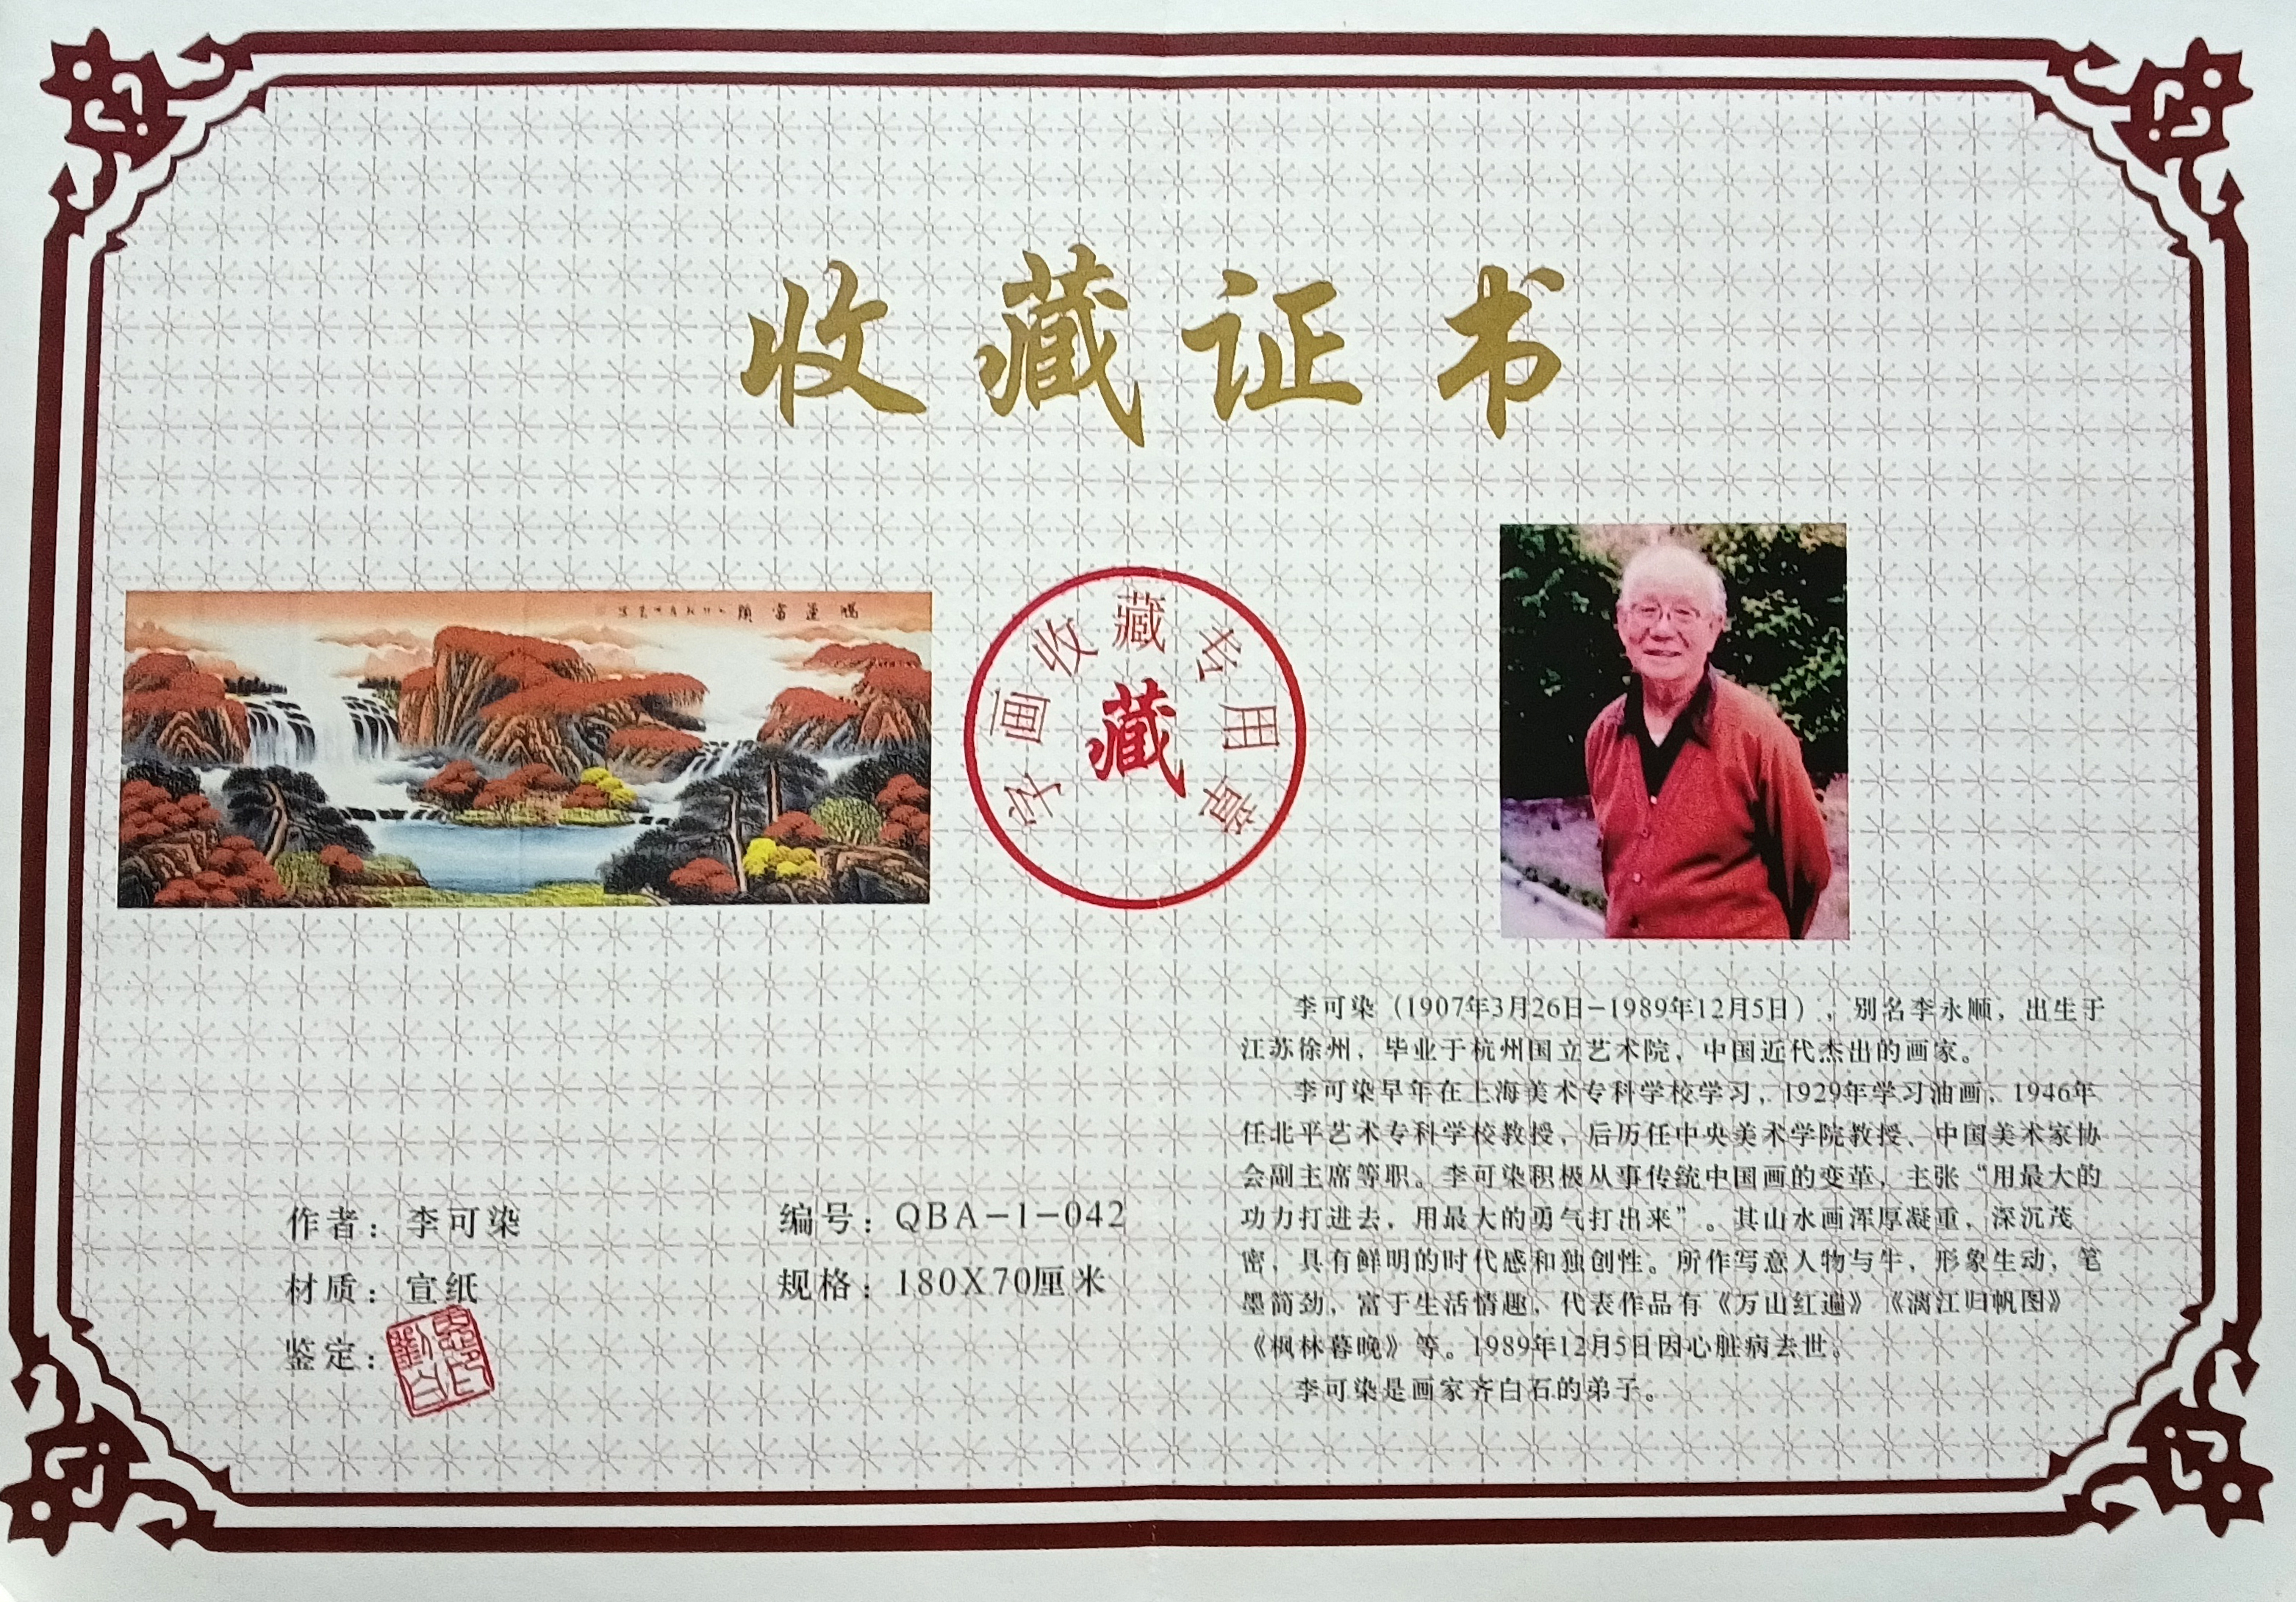 收藏证书
字画收藏专用章
藏
李可染（1907年3月26日-1989年12月5日），别名李永顺，出生于
江苏徐州，毕业于杭州国立艺术院，中国近代杰出的画家。
李可染早年在上海美术专科学校学习，1929年学习油画，1946年
任北平艺术专科学校教授，后历任中央美术学院教授、中国美术家协
会副主席等职。李可染积极从事传统中国画的变革，主张“用最大的
功力打进去，用最大的勇气打出来”。其山水画浑厚凝重，深沉茂
密，具有鲜明的时代感和独创性。所作写意人物与牛，形象生动，笔
墨简劲，富于生活情趣，代表作品有《万山红遍》《漓江归帆图》
《枫林暮晚》等。1989年12月5日因心脏病去世。
李可染是画家齐白石的弟子。
作者：李可染
编号：QBA-1-042
材质：宣纸
规格：180X70厘米
鉴定：